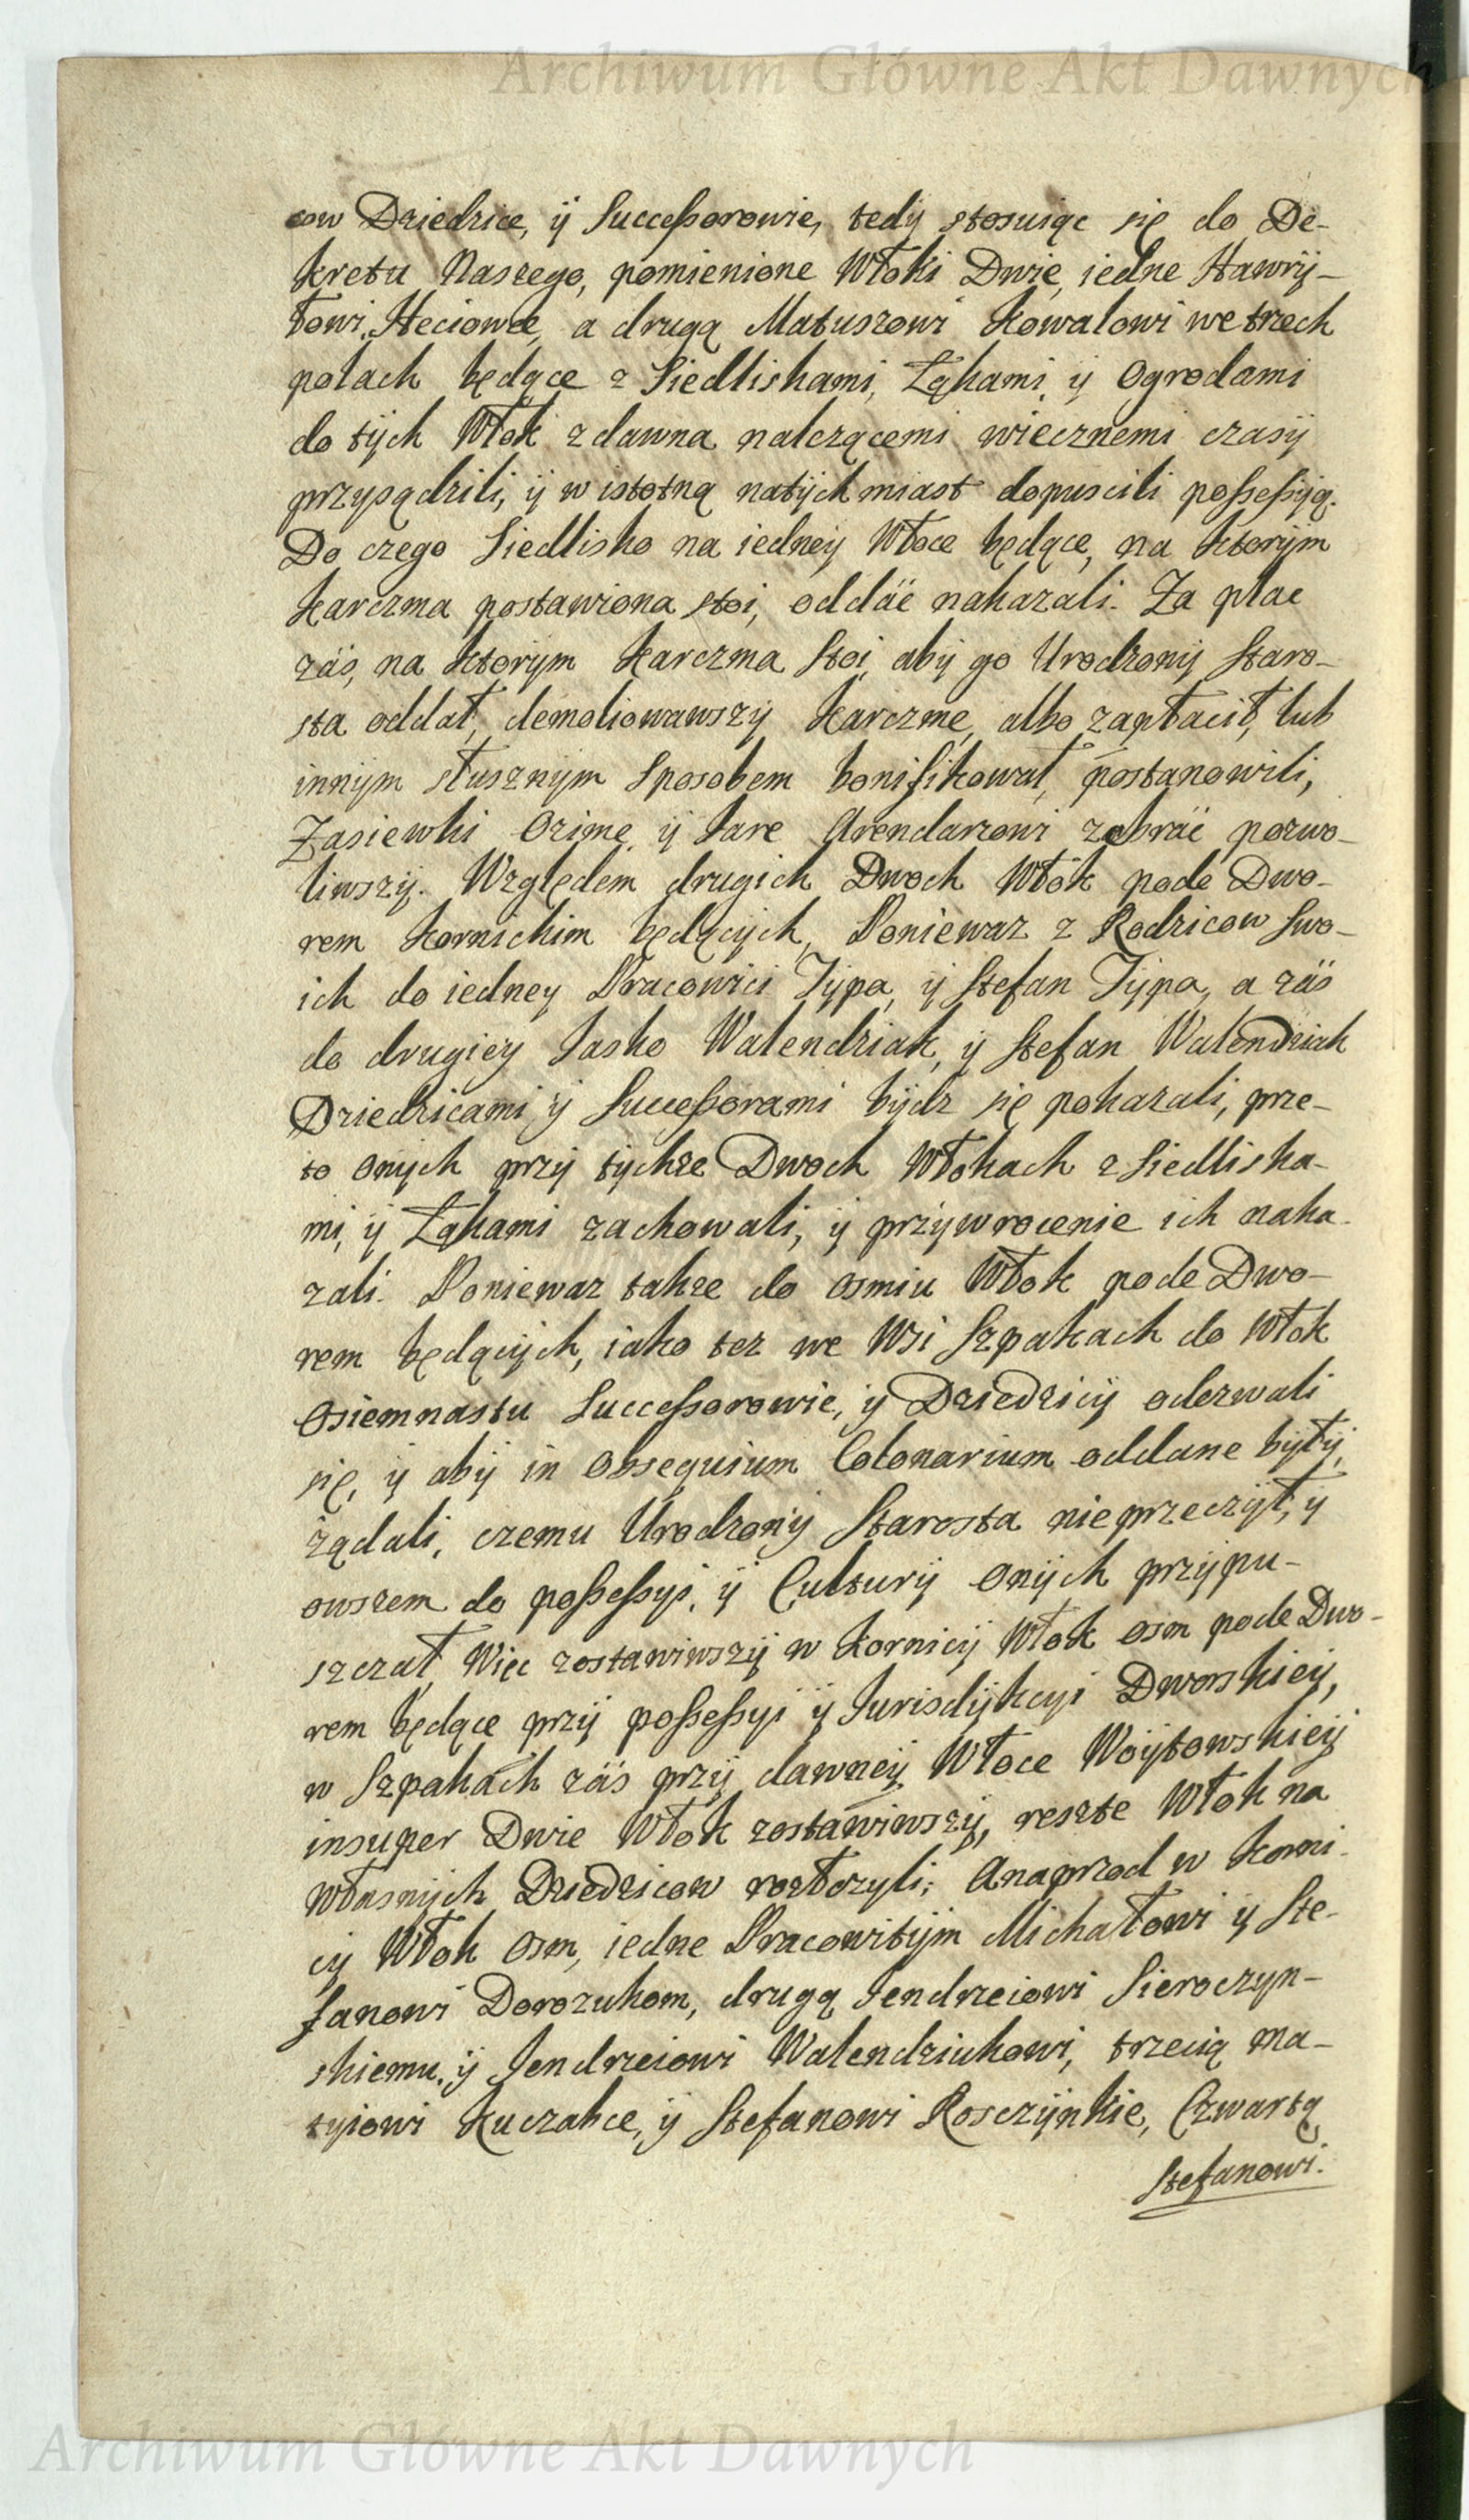 Archiwum Główne Akt Dawnych
cow Dziedzice, ÿ Successorowie, tedÿ stosuiąc się do De-
kretu Naszego, pomienione Włoki Dwie, iedne Hawrÿ-
łowi Heciowce, a drugą Matuszowi Kowalowi we trzech
polach będące z Siedliskami, Łąkami, ÿ Ogrodami
do tÿch Włok zdawna należącemi wiecznemi czasÿ
przysądzili, ÿ w istotną natÿchmiast dopuscili possessÿą.
Do czego Siedlisko na iedneÿ Włoce będące, na ktorÿm
Karczma postawiona stoi, oddać nakazali. Za plac
zaś, na ktorym Karczma stoi, abÿ go Urodzonÿ Staro-
sta oddał, demoliowawszÿ Karczme, albo zapłacił, lub
innÿm słusznÿm sposobem bonifikował, postanowili,
Zasiewki Ozime, ÿ Jare Arendarzowi zebrać pozwo-
liwszÿ. Względem drugich Dwoch Włok pode Dwo-
rem Kornickim będącÿch, Poniewaz z Rodzicow Swo-
ich do iedney Pracowici Typa, ÿ Stefan Typa, a zaś
do drugieÿ Jasko Walendziak, ÿ Stefan Walendziak
Dziedzicami ÿ Successorami bÿdz się pokazali, prze-
to onÿch przÿ tÿchze Dwoch Włokach z Siedliska-
mi, ÿ Łąkami zachowali, ÿ przÿwrocenie ich naka-
zali. Poniewaz takze do osmiu Włok pode Dwo-
rem będącÿch, iako tez we Wsi Szpakach do Włok
Osiemnastu Successorowie, ÿ Dziedzicÿ odezwali
się, ÿ abÿ in Obsequium Colonarium oddane bÿłÿ,
ządali, czemu Urodzonÿ Starosta nieprzeczÿł, ÿ
owszem do possessÿi, ÿ Culturÿ onÿch przÿpu-
szczał, Więc zostawiwszÿ w Kornicÿ Włok osm pode Dwo-
rem będące przÿ possessyi ÿ Jurisdÿkcyi Dworskieÿ,
w Szpakach zaś przÿ dawneÿ Włoce Woÿtowskieÿ
insuper Dwie Włok zostawiwszÿ, reszte Włok na
własnÿch Dziedzicow rozłozyli; Anaprzod w Korni-
cÿ Włok Osm, iedne Pracowitÿm Michałowi ÿ Ste-
fanowi Dorozukom, drugą Jendrzeiowi Sieroczyn-
skiemu, ÿ Jendrzeiowi Walendziukowi, trzecią Ma-
tyiowi Kuczabce, ÿ Stefanowi Rosczÿnkie, Czwartą
Stefanowi.
Archiwum Główne Akt Dawnych